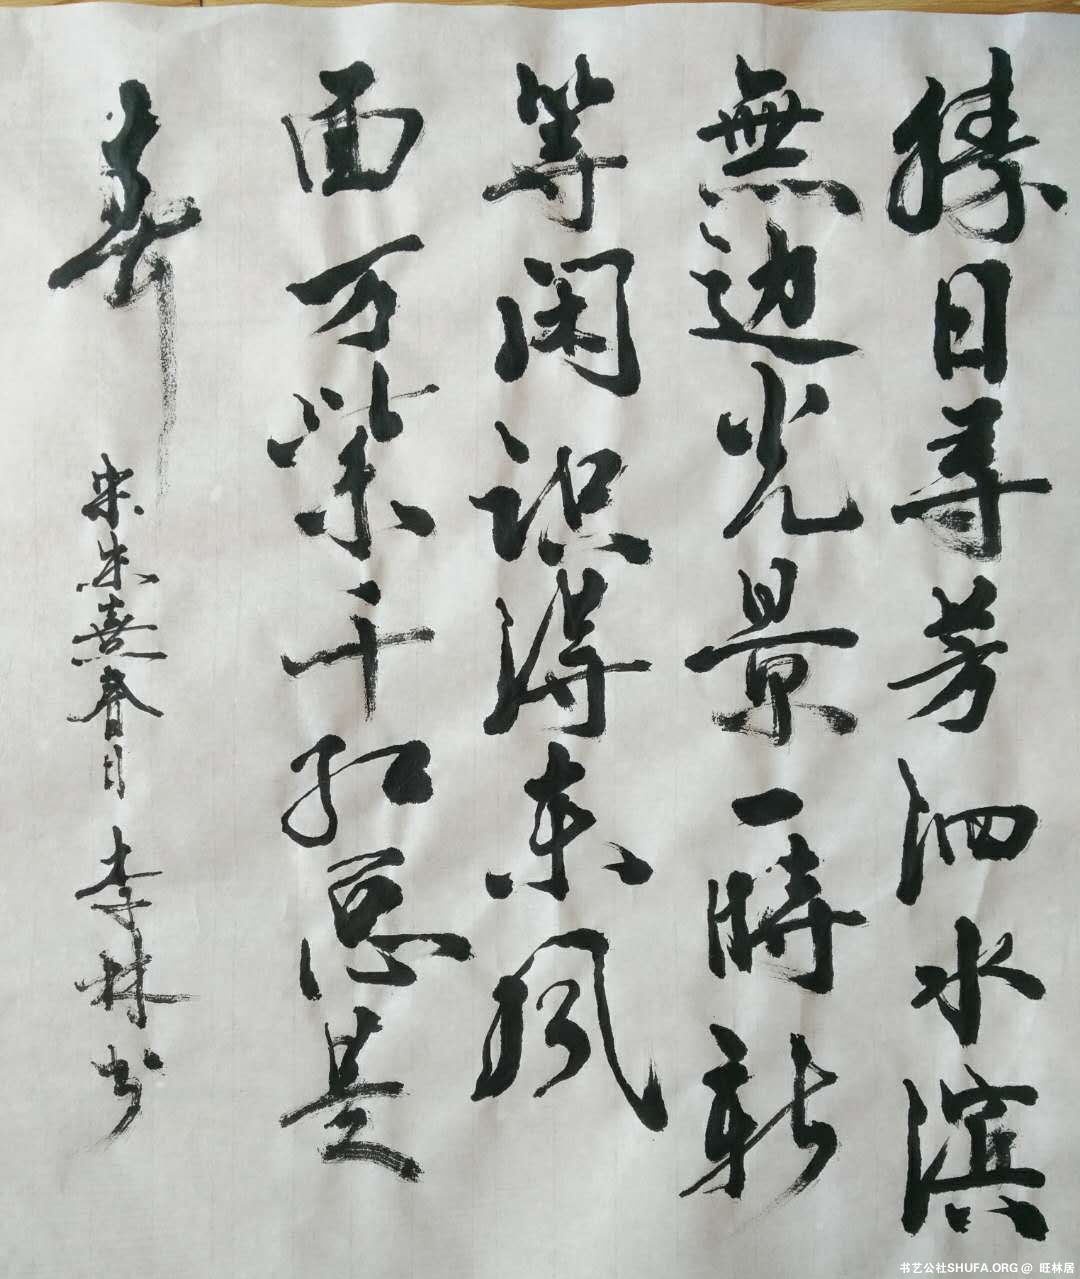 勝日寻芳泗水滨
無边光景一時新
等闲识得东风
面万紫千红总是
春
宋朱熹春日 李林书
书艺公社SHUFA.ORG @ 旺林居